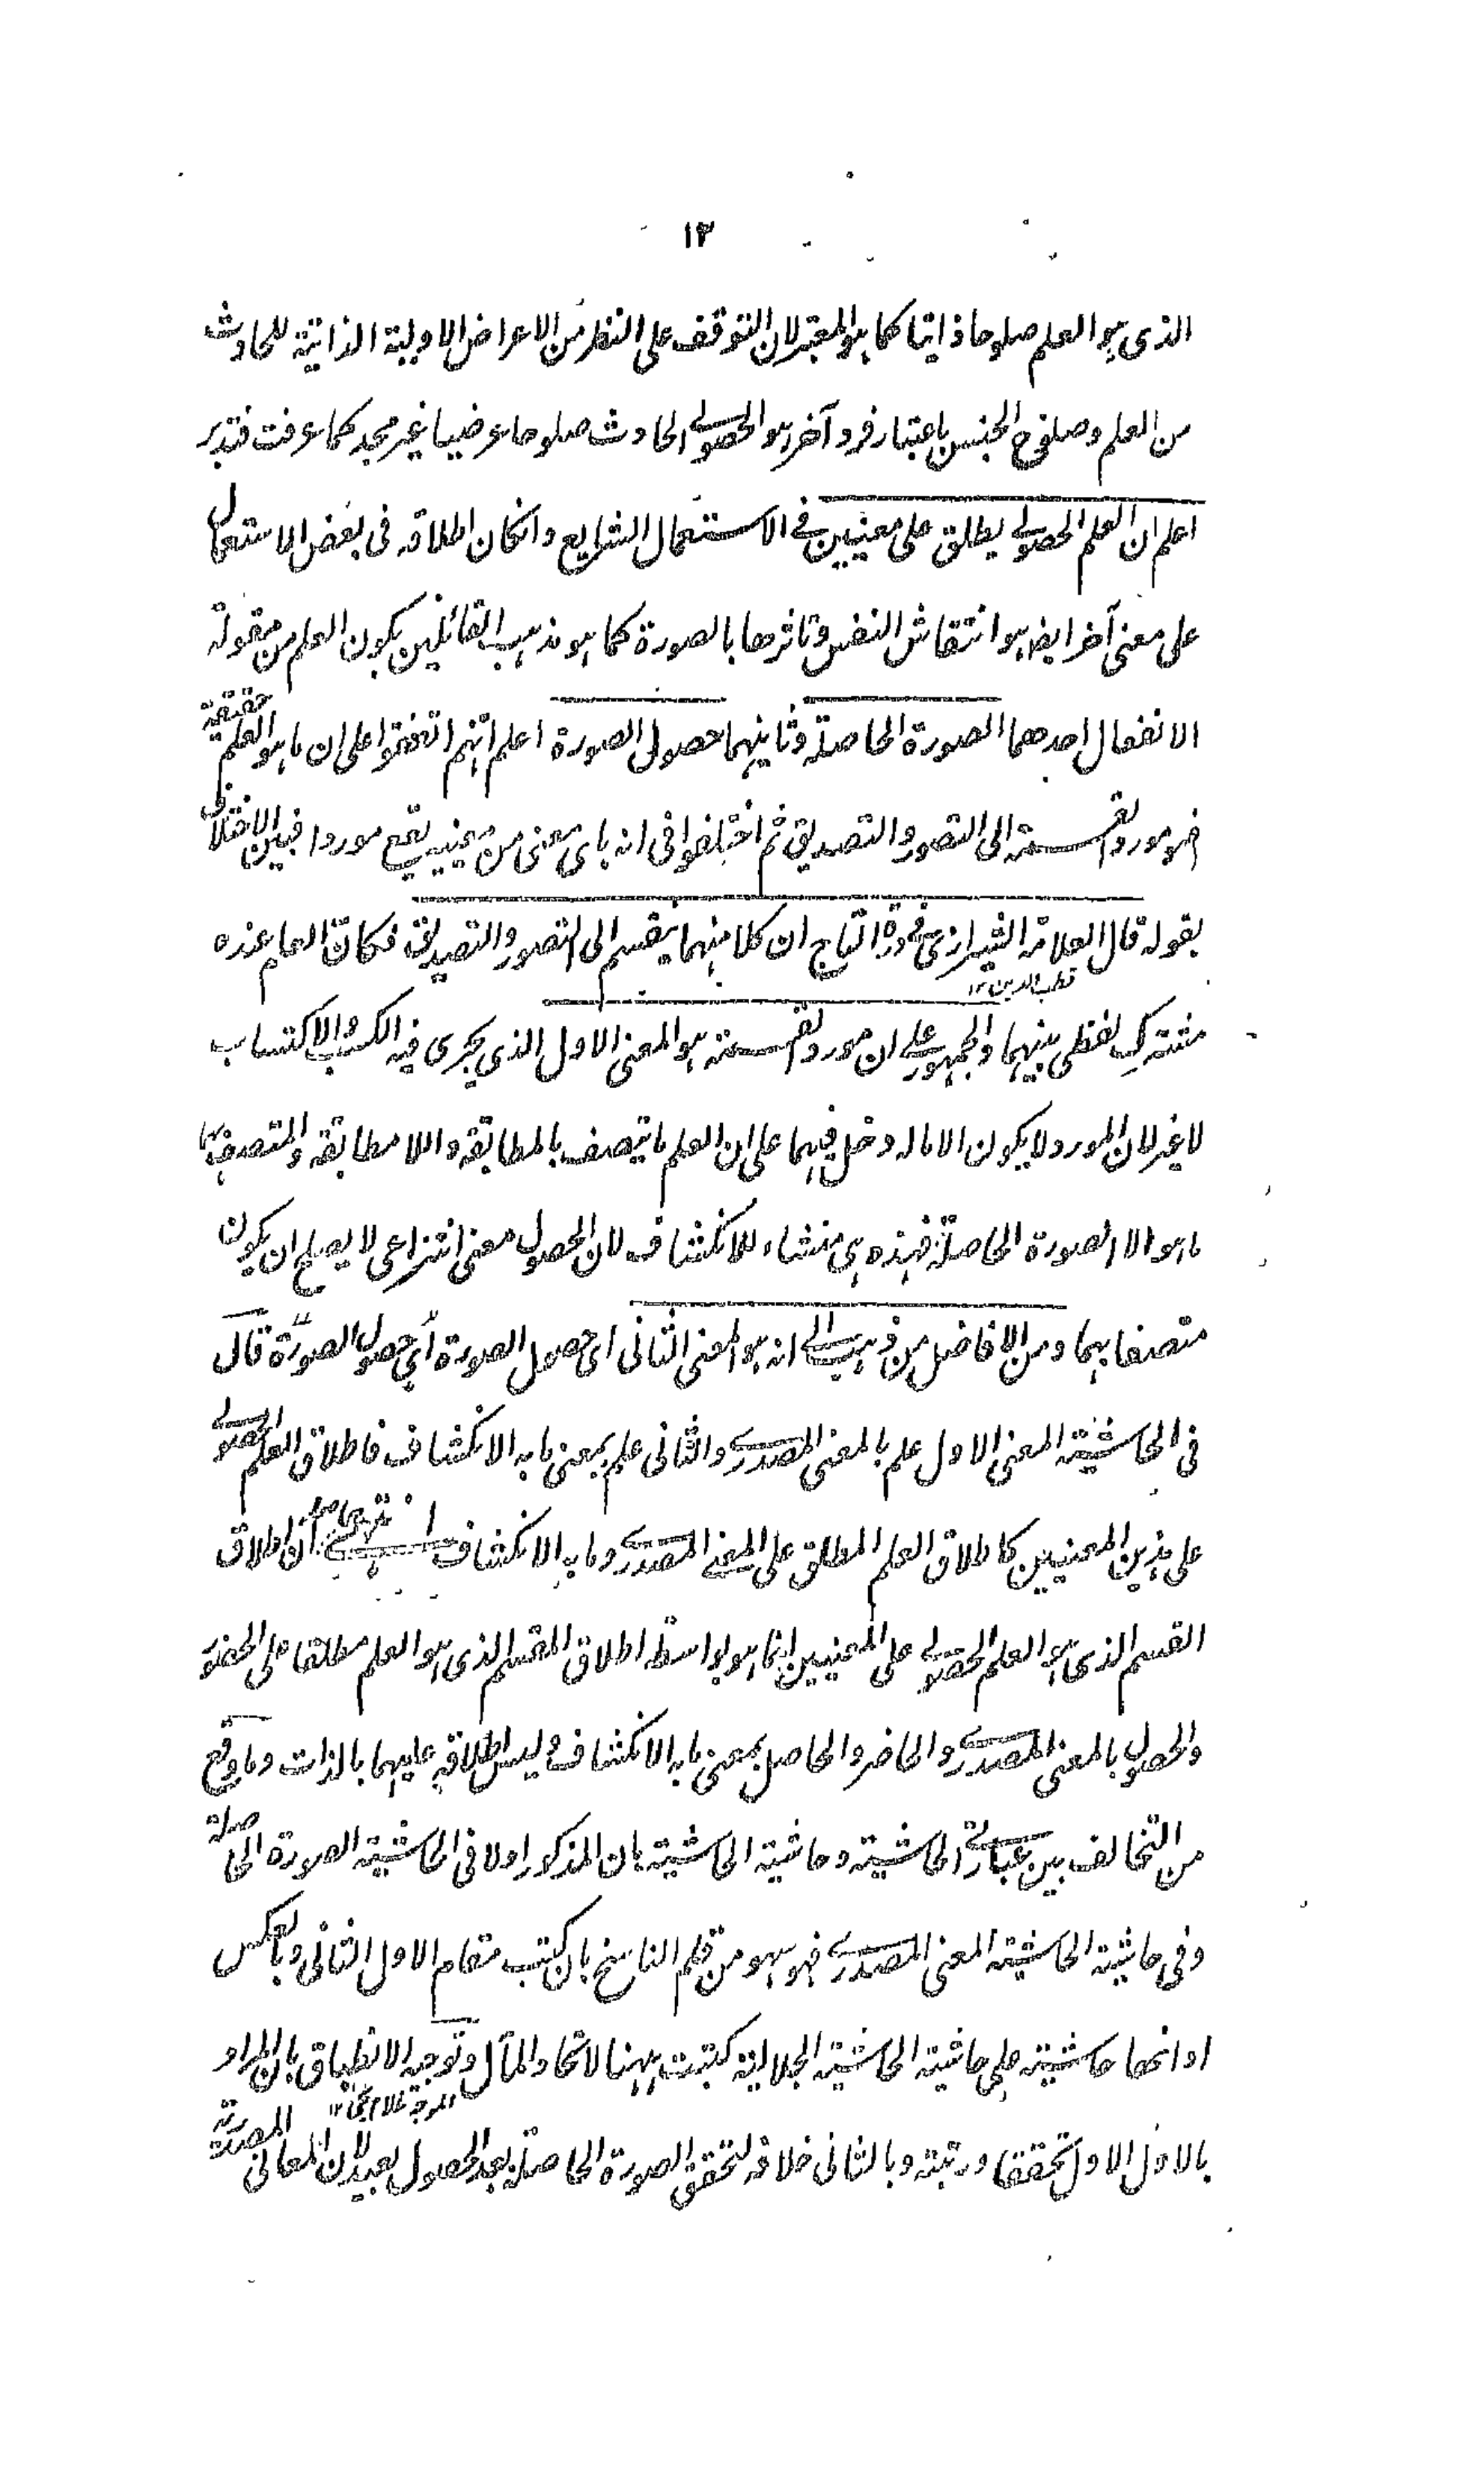 ١٣
الذى هو العلم صلوحا ذاتيا كما هو المعتبر لان التوقف على النظر من الاعراض الاولية الذاتية للحادث
من العلم وصلوح الجنس باعتبار فرد آخر هو الحصولى الحادث صلوحا عرضيا غير مجد كما عرفت فتدبر
اعلم ان العلم الحصولى يطلق على معنيين فى الاستعمال الشايع وانكان اطلاقه فى بعض الاستعمال
على معنى آخر ايضا هو انتقاش النفس وتاثرها بالصورة كما هو مذهب القائلين بكون العلم من مقولة
الانفعال احدهما الصورة الحاصلة وثانيهما حصول الصورة اعلم انهم اتفقوا على ان ما هو العلم حقيقة
فهو مورد القسمة الى التصور والتصديق ثم اختلفوا فى انه باى معنى من معنييه يقع موردا فبين الاختلاف
بقوله قال العلامة الشيرازى فى درة التاج ان كلا منهما ينقسم الى التصور والتصديق فكان العلم عنده
قطب الدين ١٢
مشترك لفظى بينهما والجمهور على ان مورد القسمة هو المعنى الاول الذى يجرى فيه الكسب والاكتساب
لا غير لان المورد لا يكون الا ما له دخل فيهما على ان العلم ما يتصف بالمطابقة واللامطابقة والمتصف بهما
ما هو الا الصورة الحاصلة فهذه هى منشاء للانكشاف لان الحصول معنى انتزاعى لا يصلح ان يكون
متصفا بهما ومن الافاضل من ذهب الى انه هو المعنى الثانى اى حصول الصورة أى حصول الصورة قال
فى الحاشية المعنى الاول علم بالمعنى المصدرى والثانى علم بمعنى ما به الانكشاف فاطلاق العلم الحصولى
على هذين المعنيين كاطلاق العلم المطلق على المعنى المصدرى وما به الانكشاف انتهى حاصله ان اطلاق
القسم الذى هو العلم الحصولى على المعنيين انما هو بواسطة اطلاق المقسم الذى هو العلم مطلقا على الحضور
والحصول بالمعنى المصدرى والحاضر والحاصل بمعنى ما به الانكشاف وليس اطلاقه عليهما بالذات وما وقع
من التخالف بين عبارتى الحاشية وحاشية الحاشية بان المذكور اولا فى الحاشية الصورة الحاصلة
وفى حاشية الحاشية المعنى المصدرى فهو سهو من قلم الناسخ بان كتب مقام الاول الثانى وبالعكس
او انها حاشية على حاشية الحاشية الجلالية كتبت ههنا لاتحاد المآل وتوجيه الانطباق بان المراد
بالاول الاول تحققا ورتبة وبالثانى خلافه لتحقق الصورة الحاصلة بعد الحصول بعيد لان المعانى المصدرية